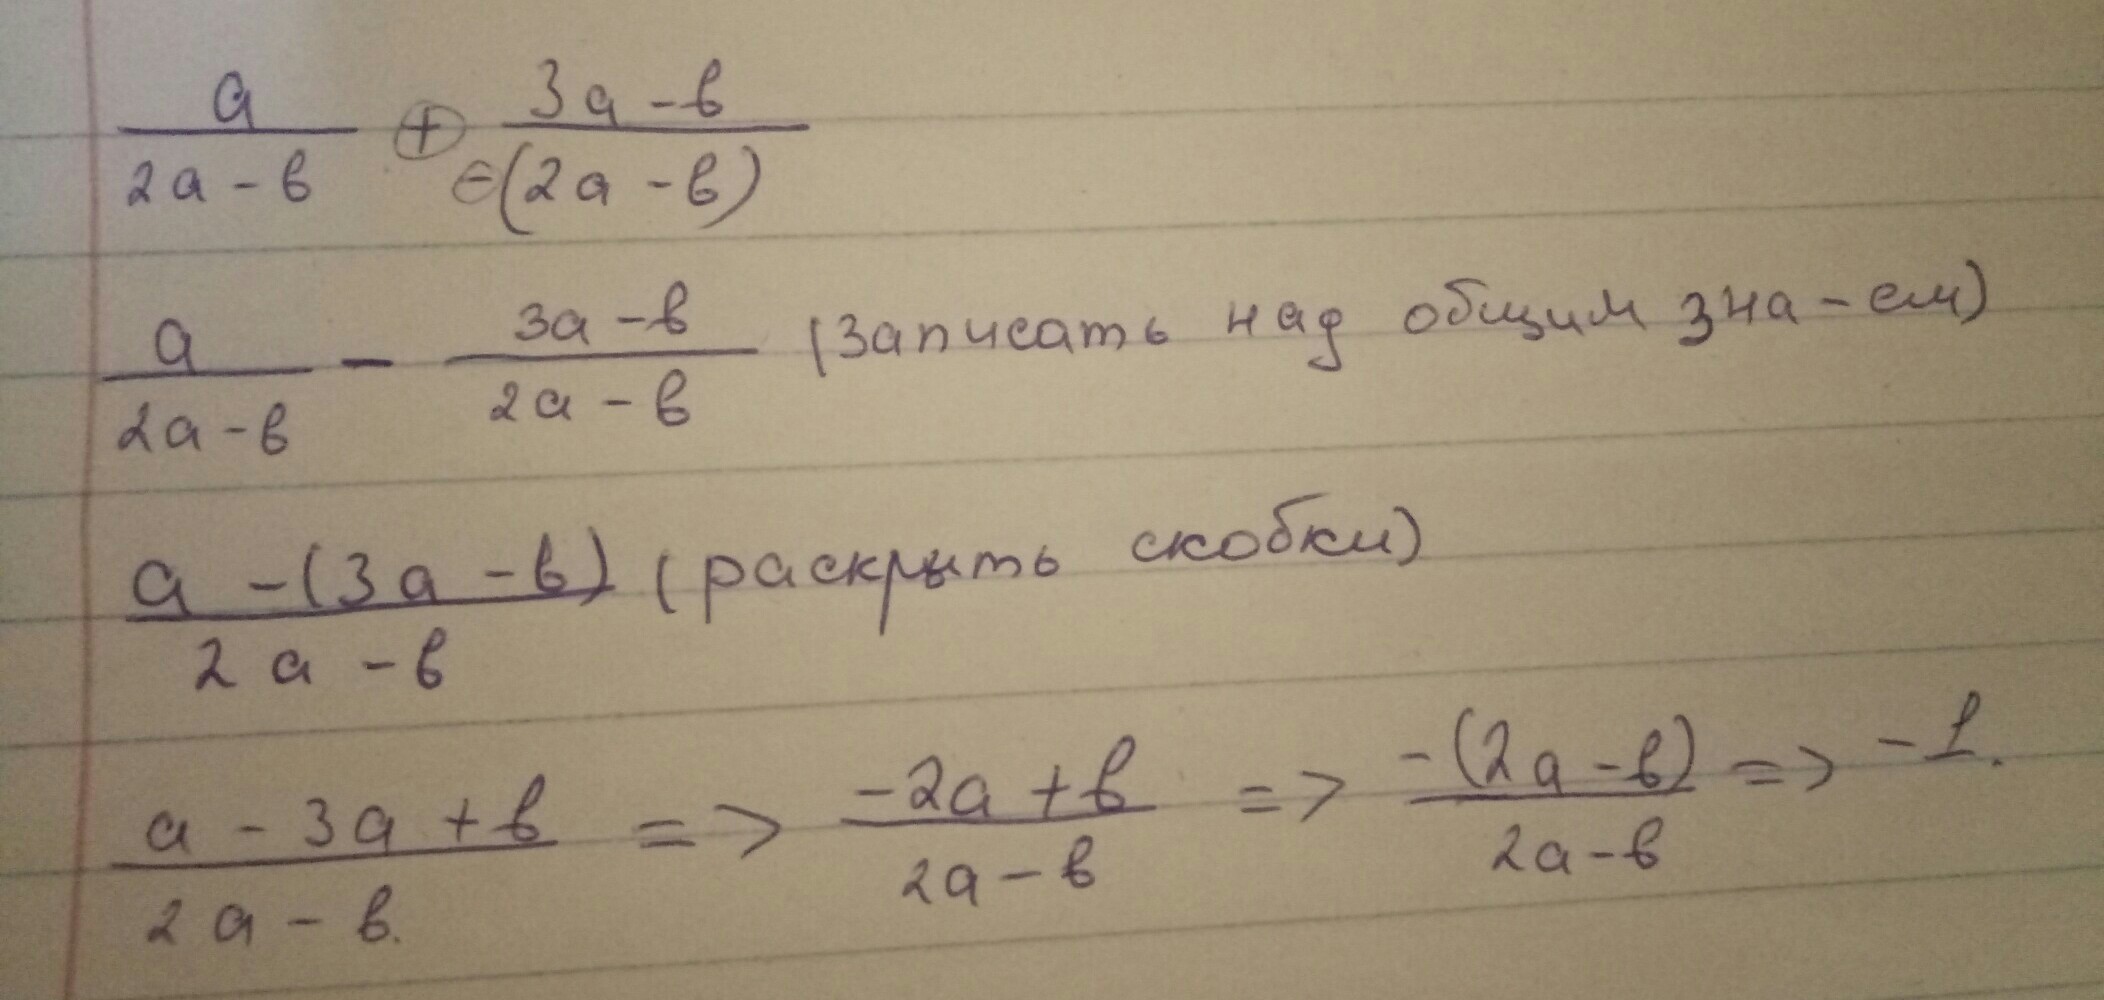 a/(2a-в) ⊕ (3a-в)/(⊖(2a-в))
a/(2a-в) - (3a-в)/(2a-в) (записать над общим зна-ем)
(a-(3a-в))/(2a-в) (раскрыть скобки)
(a-3a+в)/(2a-в.) => (-2a+в)/(2a-в) => (-(2a-в))/(2a-в) => -1.